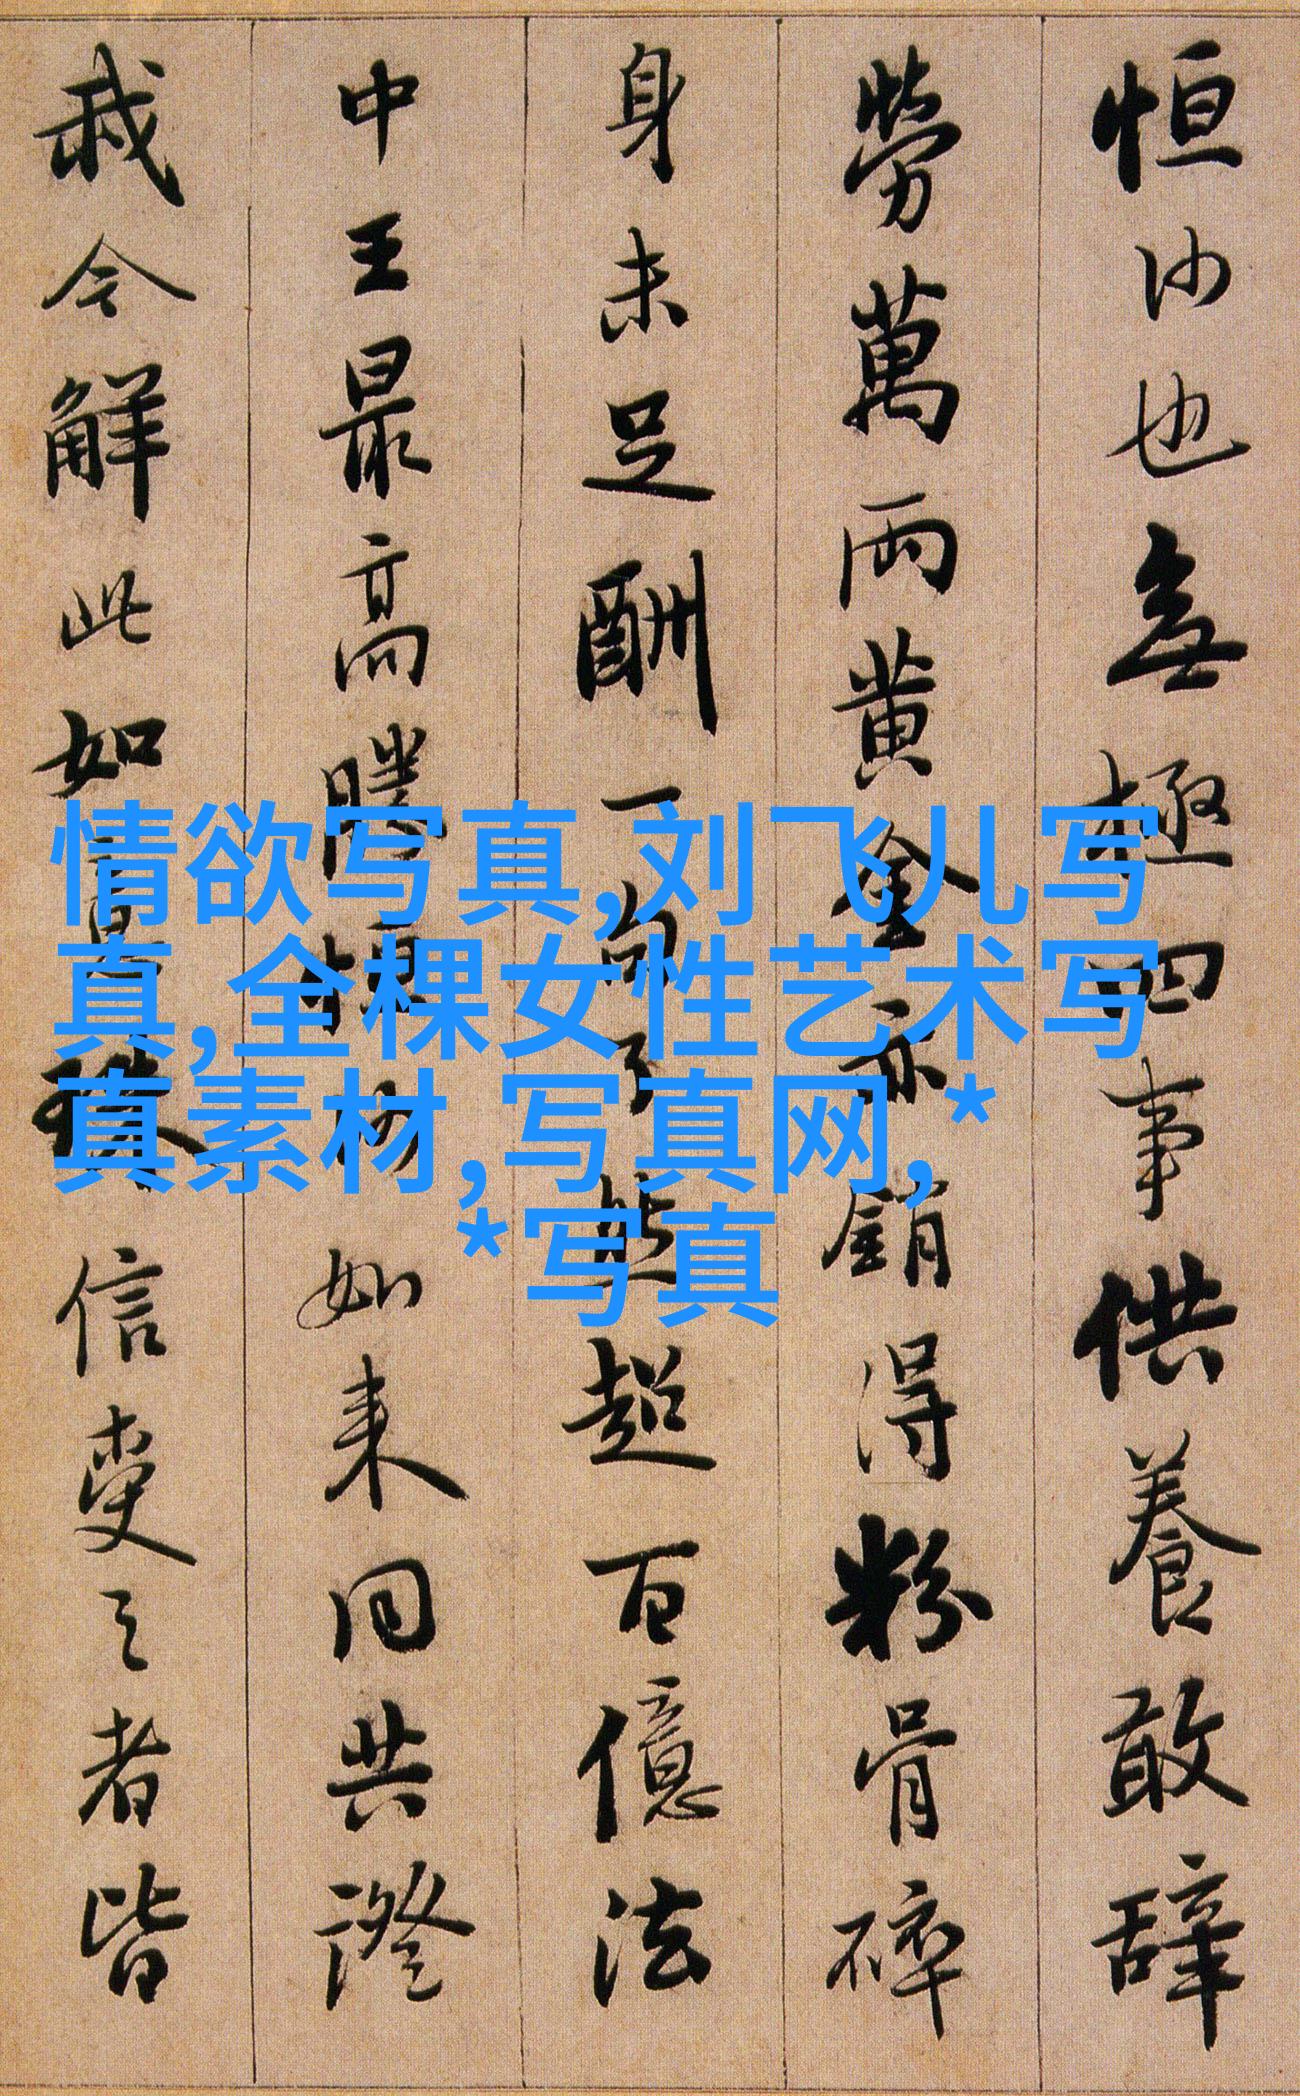 恒沙也無極四事供養敢辞
勞萬兩黄金亦銷得粉骨碎
身未足酬一句了然超百億法
中王最高勝恒沙如来同共證
我今解此如意珠信受之者皆
情欲写真,刘飞儿写
真,全棵女性艺术写
真素材,写真网,*
*写真